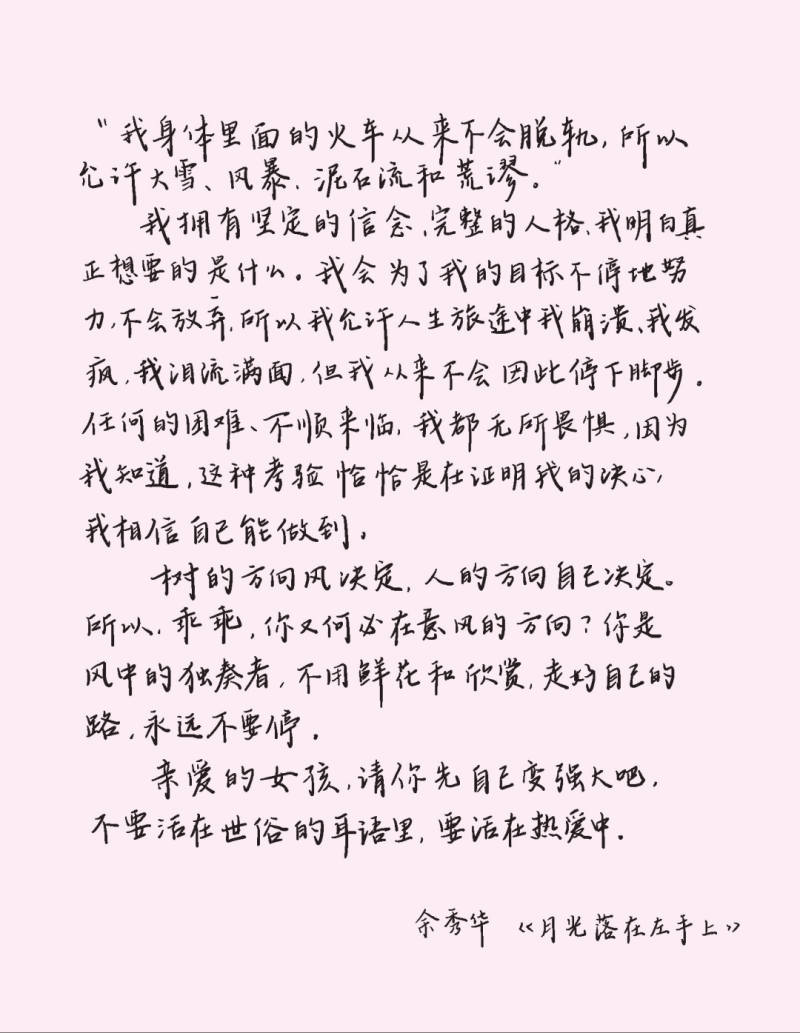 “我身体里面的火车从来不会脱轨，所以
允许大雪、风暴、泥石流和荒谬。”
我拥有坚定的信念、完整的人格、我明白真
正想要的是什么。我会为了我的目标不停地努
力，不会放弃，所以我允许人生旅途中我崩溃、我发
疯，我泪流满面，但我从来不会因此停下脚步。
任何的困难、不顺来临，我都无所畏惧，因为
我知道，这种考验恰恰是在证明我的决心，
我相信自己能做到。
树的方向风决定，人的方向自己决定。
所以，乖乖，你又何必在意风的方向？你是
风中的独奏者，不用鲜花和欣赏，走好自己的
路，永远不要停。
亲爱的女孩，请你先自己变强大吧，
不要活在世俗的耳语里，要活在热爱中。
余秀华 《月光落在左手上》